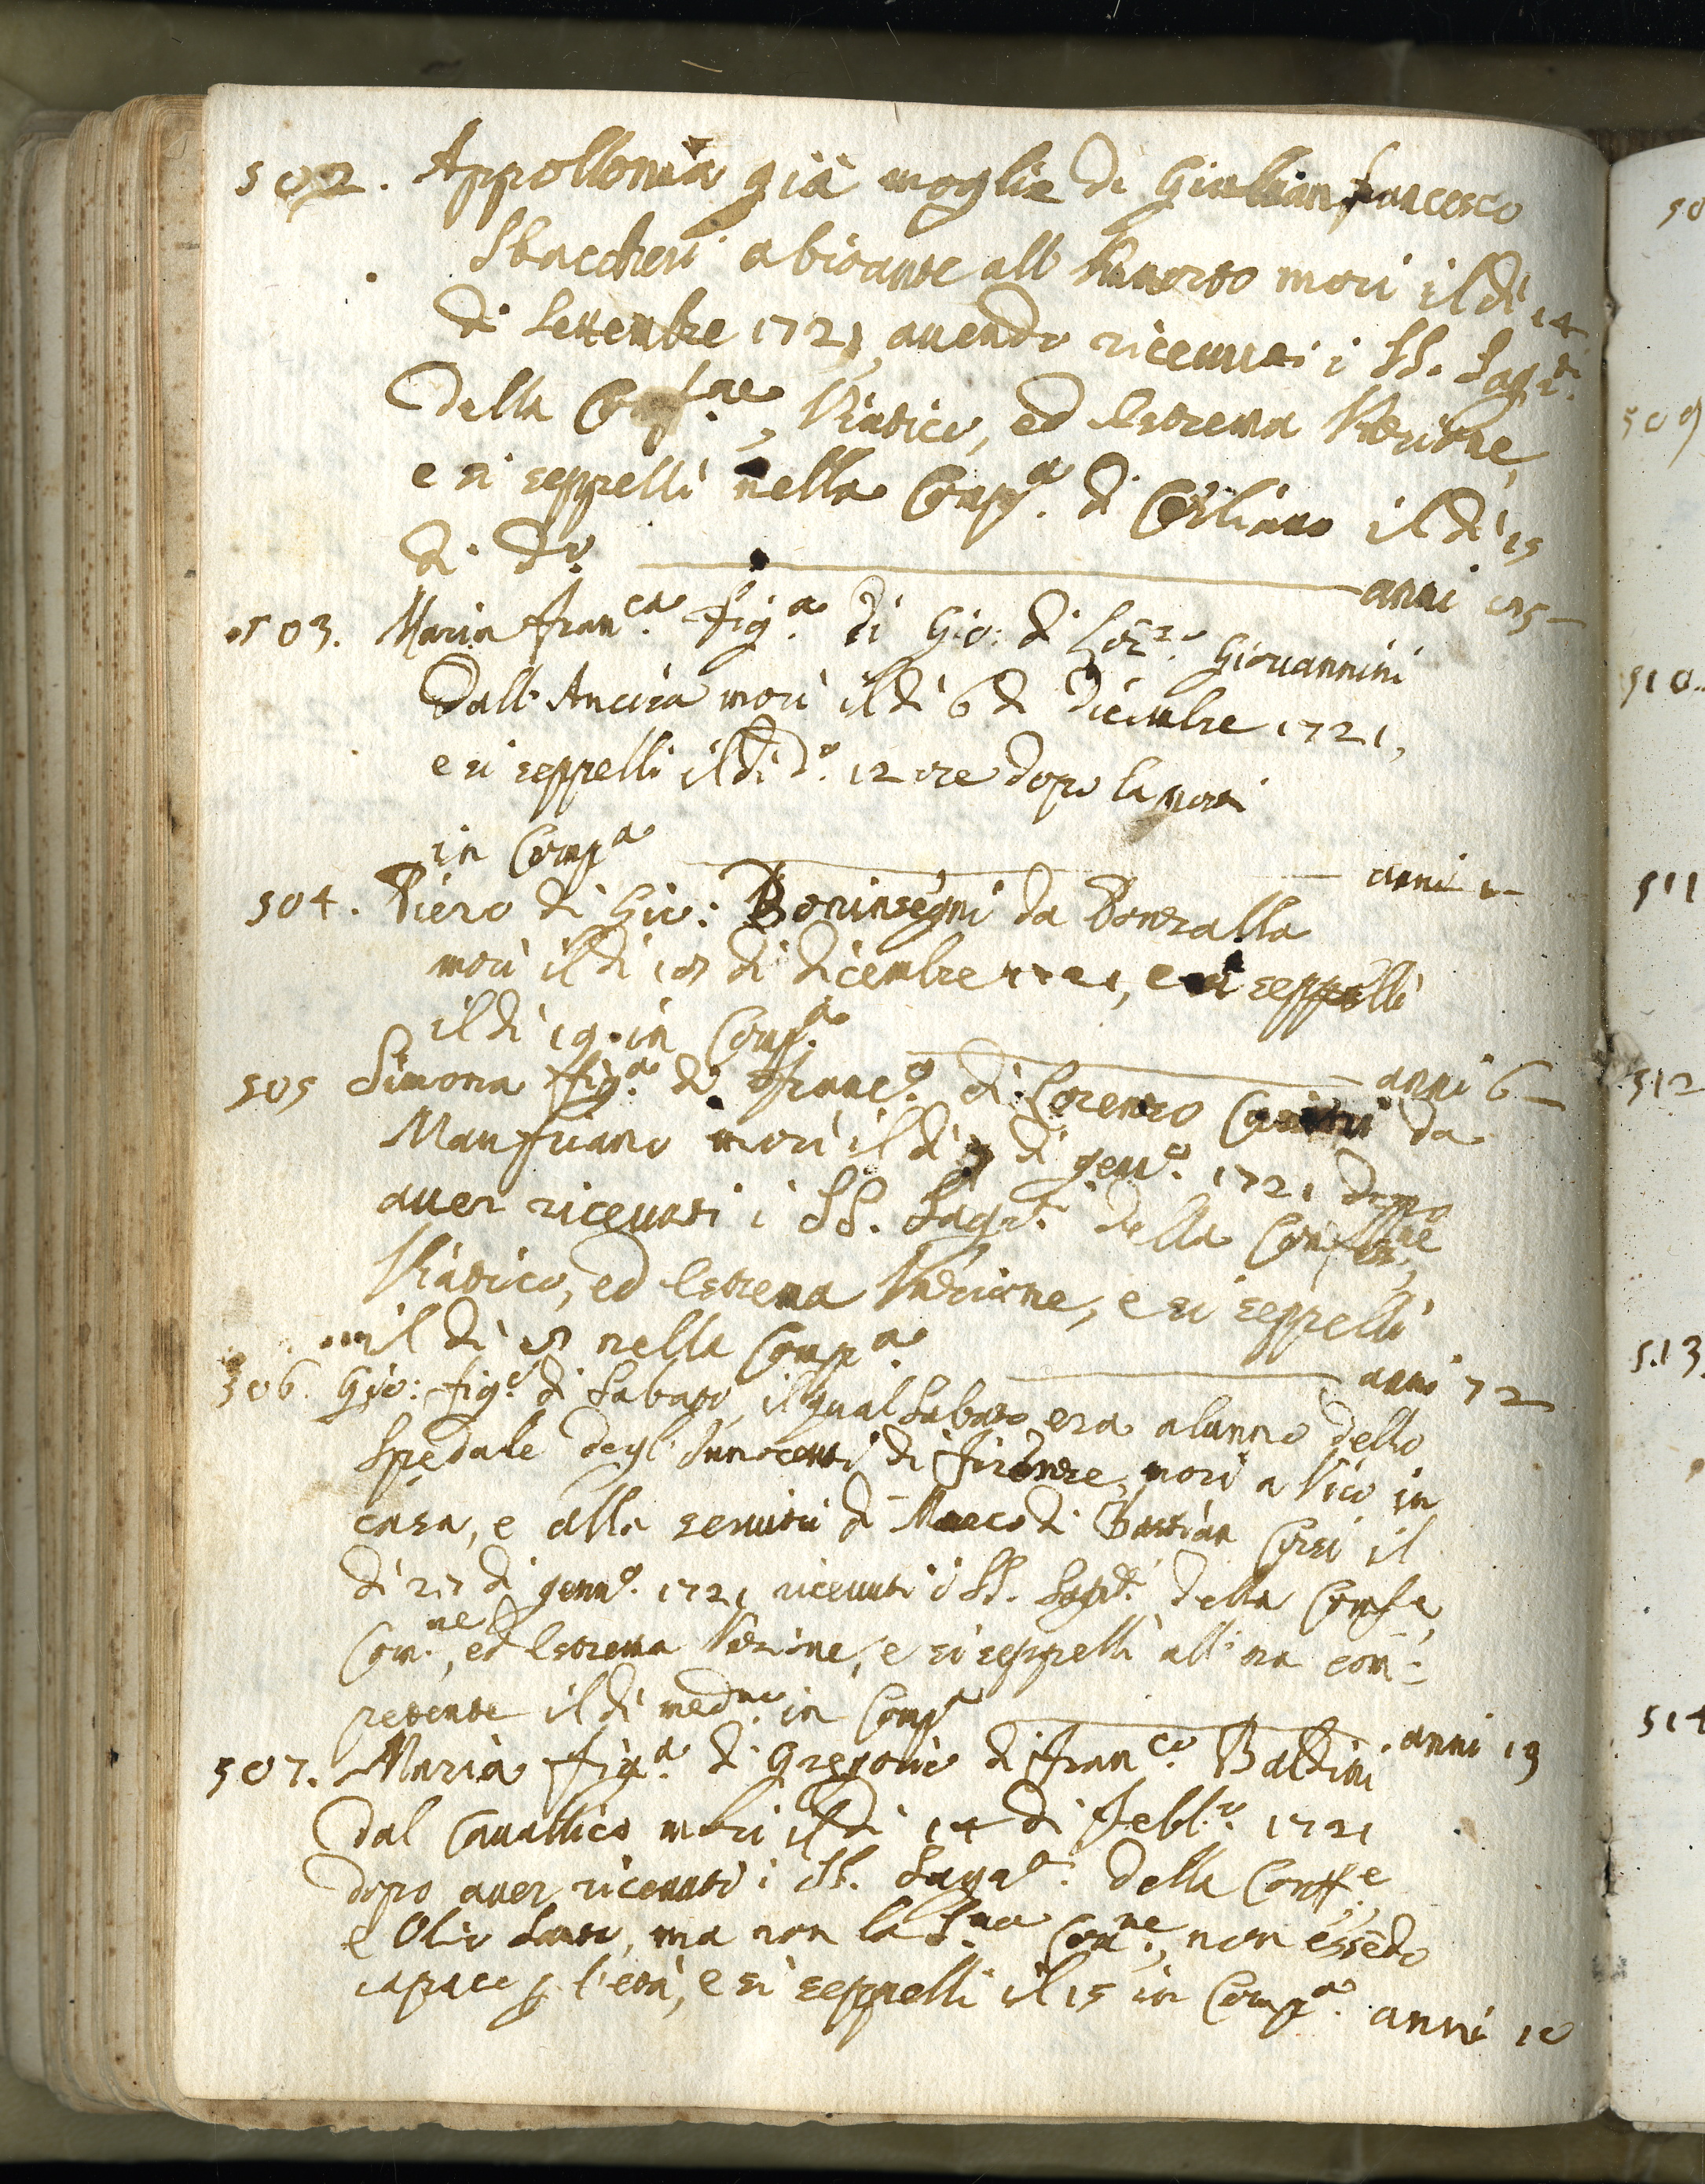 502. Appollonia già moglie di Giulianfrancesco
abitante all' morì il dì 14
di Settembre 1721, avendo ricevuti i SS. Sag.ti
della Conf.ne, Viatico, ed Estrema Unzione,
e si seppellì nella Comp.a di il dì 15
di d.o anni
503. Maria Fran.ca fig.a di Gio: di Lor.zo Giovannini
dall' Ancisa morì il dì 6 di Dicembre 1721,
e si seppellì il dì d.o 12 ore dopo la morte
in Comp.a anni 1
504. Piero di Gio: Boninsegni da Bonzalla
morì il dì 18 di Dicembre 1721, e si seppellì
il dì 19 in Comp.a anni 6
505 Simona fig.a di Franc.o di Lorenzo da
morì il dì di Genn.o 1721 dopo
aver ricevuti i SS. Sagr.ti della Confess.ne,
Viatico, ed Estrema Unzione, e si seppellì
il dì 8 nella Comp.a anni 72
506. Gio: fig.o di Sabato, il qual Sabato era alunno dello
Spedale degl' Innocenti di Firenze, morì a Vico in
casa, e alla servitù di Marco di Bastian Corsi il
dì 27 di Genn.o 1721 ricevuti i SS. Sagr.ti della Conf.e,
Com.ne, ed Estrema Unzione, e si seppellì all' ora com=
petente il dì med.mo in Comp.a anni 19
507. Maria fig.a di Gregorio di Fran.co Baldini
dal Cavallico morì il dì 14 di Febb.o 1721
dopo aver ricevuti i SS. Sagr.ti della Conff.e
e Olio Santo, ma non la S.ma Com.ne, non essēdo
capace p l'età, e si seppellì il 15 in Comp.a anni 10
50
509
510.
511
512
513.
514